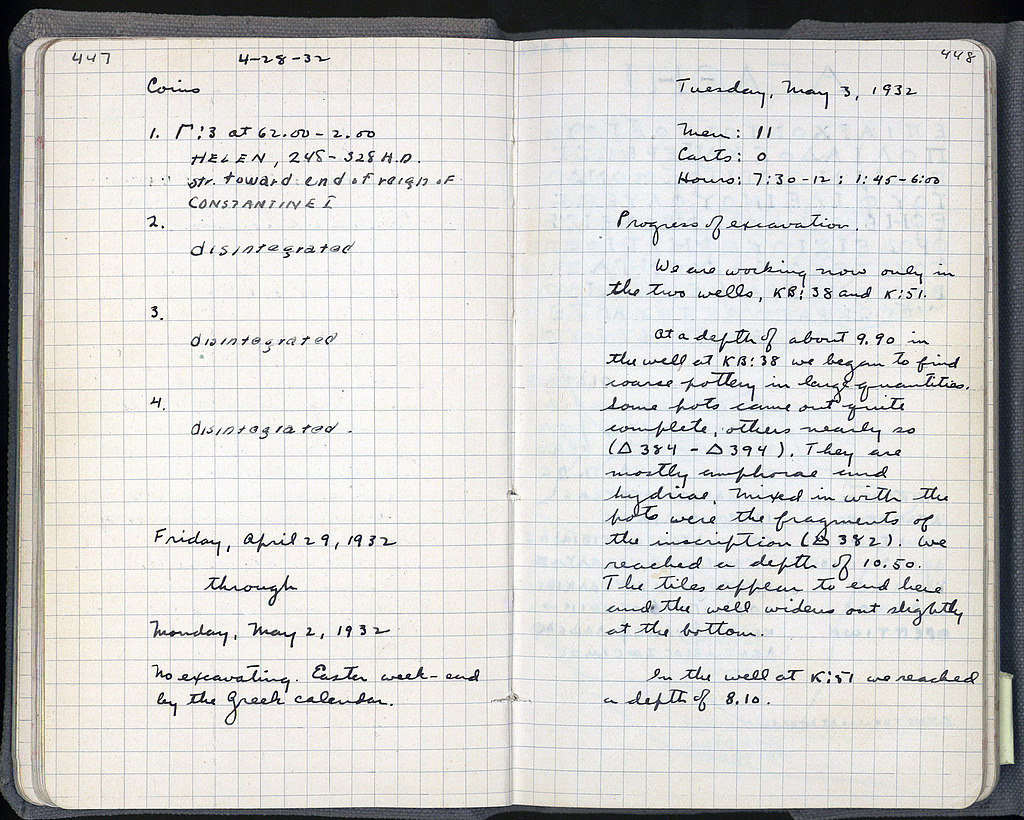 447
4-28-32
Coins
1. Γ:3 at 62.00 - 2.00
HELEN, 248 - 328 A.D.
str. toward end of reign of
CONSTANTINE I
2.
disintegrated
3.
disintegrated
4.
disintegrated.
Friday, April 29, 1932
through
Monday, May 2, 1932
No excavating. Easter week-end
by the Greek calendar.
448
Tuesday, May 3, 1932
Men: 11
Carts: 0
Hours: 7:30-12; 1:45-6:00
Progress of excavation.
We are working now only in
the two wells, KB:38 and K:51.
At a depth of about 9.90 in
the well at KB:38 we began to find
coarse pottery in large quantities.
Some pots came out quite
complete, others nearly so
(Δ 384 - Δ 394). They are
mostly amphorae and
hydriae. Mixed in with the
pots were the fragments of
the inscription (Δ 382). We
reached a depth of 10.50.
The tiles appear to end here
and the well widens out slightly
at the bottom.
In the well at K:51 we reached
a depth of 8.10.